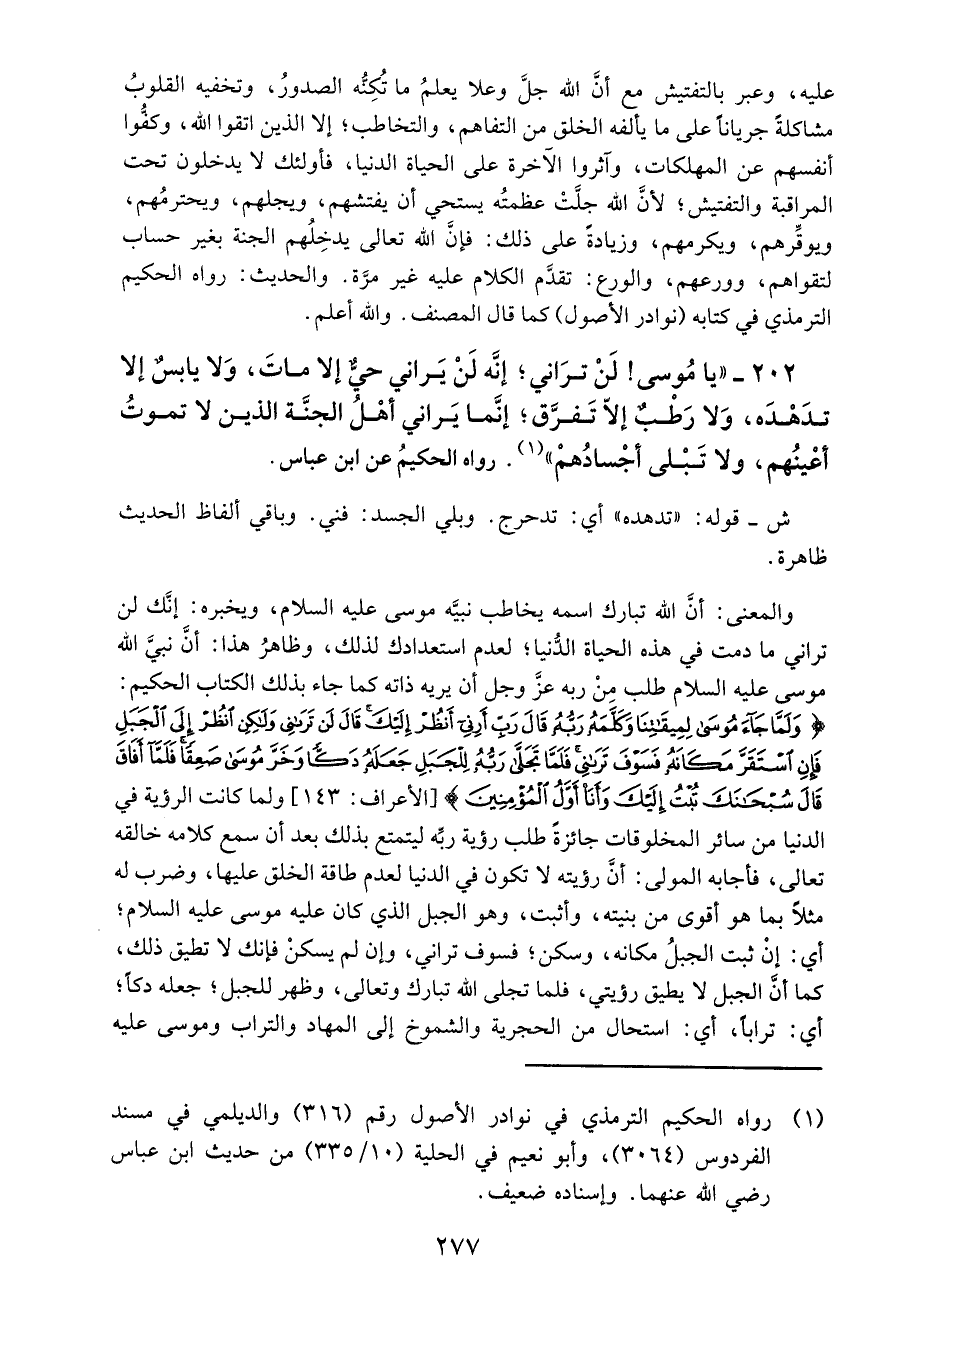 عليه، وعبر بالتفتيش مع أنَّ الله جلَّ وعلا يعلمُ ما تُكِنُّه الصدورُ، وتخفيه القلوبُ
مشاكلةً جرياناً على ما يألفه الخلق من التفاهم، والتخاطب؛ إلا الذين اتقوا الله، وكفُّوا
أنفسهم عن المهلكات، وآثروا الآخرة على الحياة الدنيا، فأولئك لا يدخلون تحت
المراقبة والتفتيش؛ لأنَّ الله جلَّتْ عظمتُه يستحي أن يفتشهم، ويجلهم، ويحترمُهم،
ويوقِّرهم، ويكرمهم، وزيادةً على ذلك: فإنَّ الله تعالى يدخِلُهم الجنة بغير حساب
لتقواهم، وورعهم، والورع: تقدَّم الكلام عليه غير مرَّة. والحديث: رواه الحكيم
الترمذي في كتابه (نوادر الأصول) كما قال المصنف. والله أعلم.
٢٠٢ ـ «يا مُوسى! لَنْ تَرَاني؛ إنَّه لَنْ يَراني حيٌّ إلا ماتَ، وَلا يابسٌ إلا
تدَهْدَه، وَلا رَطْبٌ إلاّ تَفرَّق؛ إنَّما يَراني أهْلُ الجنَّة الذين لا تموتُ
أعْينُهم، ولا تَبْلى أجْسادُهمْ»(١). رواه الحكيمُ عن ابن عباس.
ش ـ قوله: «تدهده» أي: تدحرج. وبلي الجسد: فني. وباقي ألفاظ الحديث
ظاهرة.
والمعنى: أنَّ الله تبارك اسمه يخاطب نبيَّه موسى عليه السلام، ويخبره: إنَّك لن
تراني ما دمت في هذه الحياة الدُّنيا؛ لعدم استعدادك لذلك، وظاهرُ هذا: أنَّ نبيَّ الله
موسى عليه السلام طلب مِنْ ربه عزَّ وجل أن يريه ذاته كما جاء بذلك الكتاب الحكيم:
﴿ وَلَمَّا جَآءَ مُوسَىٰ لِمِيقَٰتِنَا وَكَلَّمَهُۥ رَبُّهُۥ قَالَ رَبِّ أَرِنِىٓ أَنظُرْ إِلَيْكَۚ قَالَ لَن تَرَىٰنِى وَلَٰكِنِ ٱنظُرْ إِلَى ٱلْجَبَلِ
فَإِنِ ٱسْتَقَرَّ مَكَانَهُۥ فَسَوْفَ تَرَىٰنِىۚ فَلَمَّا تَجَلَّىٰ رَبُّهُۥ لِلْجَبَلِ جَعَلَهُۥ دَكًّا وَخَرَّ مُوسَىٰ صَعِقًاۚ فَلَمَّآ أَفَاقَ
قَالَ سُبْحَٰنَكَ تُبْتُ إِلَيْكَ وَأَنَا۠ أَوَّلُ ٱلْمُؤْمِنِينَ ﴾ [الأعراف: ١٤٣] ولما كانت الرؤية في
الدنيا من سائر المخلوقات جائزةً طلب رؤية ربِّه ليتمتع بذلك بعد أن سمع كلامه خالقه
تعالى، فأجابه المولى: أنَّ رؤيته لا تكون في الدنيا لعدم طاقة الخلق عليها، وضرب له
مثلاً بما هو أقوى من بنيته، وأثبت، وهو الجبل الذي كان عليه موسى عليه السلام؛
أي: إنْ ثبت الجبلُ مكانه، وسكن؛ فسوف تراني، وإن لم يسكنْ فإنك لا تطيق ذلك،
كما أنَّ الجبل لا يطيق رؤيتي، فلما تجلى الله تبارك وتعالى، وظهر للجبل؛ جعله دكاً؛
أي: تراباً، أي: استحال من الحجرية والشموخ إلى المهاد والتراب وموسى عليه
(١) رواه الحكيم الترمذي في نوادر الأصول رقم (٣١٦) والديلمي في مسند
الفردوس (٣٠٦٤)، وأبو نعيم في الحلية (١٠/٣٣٥) من حديث ابن عباس
رضي الله عنهما. وإسناده ضعيف.
٢٧٧